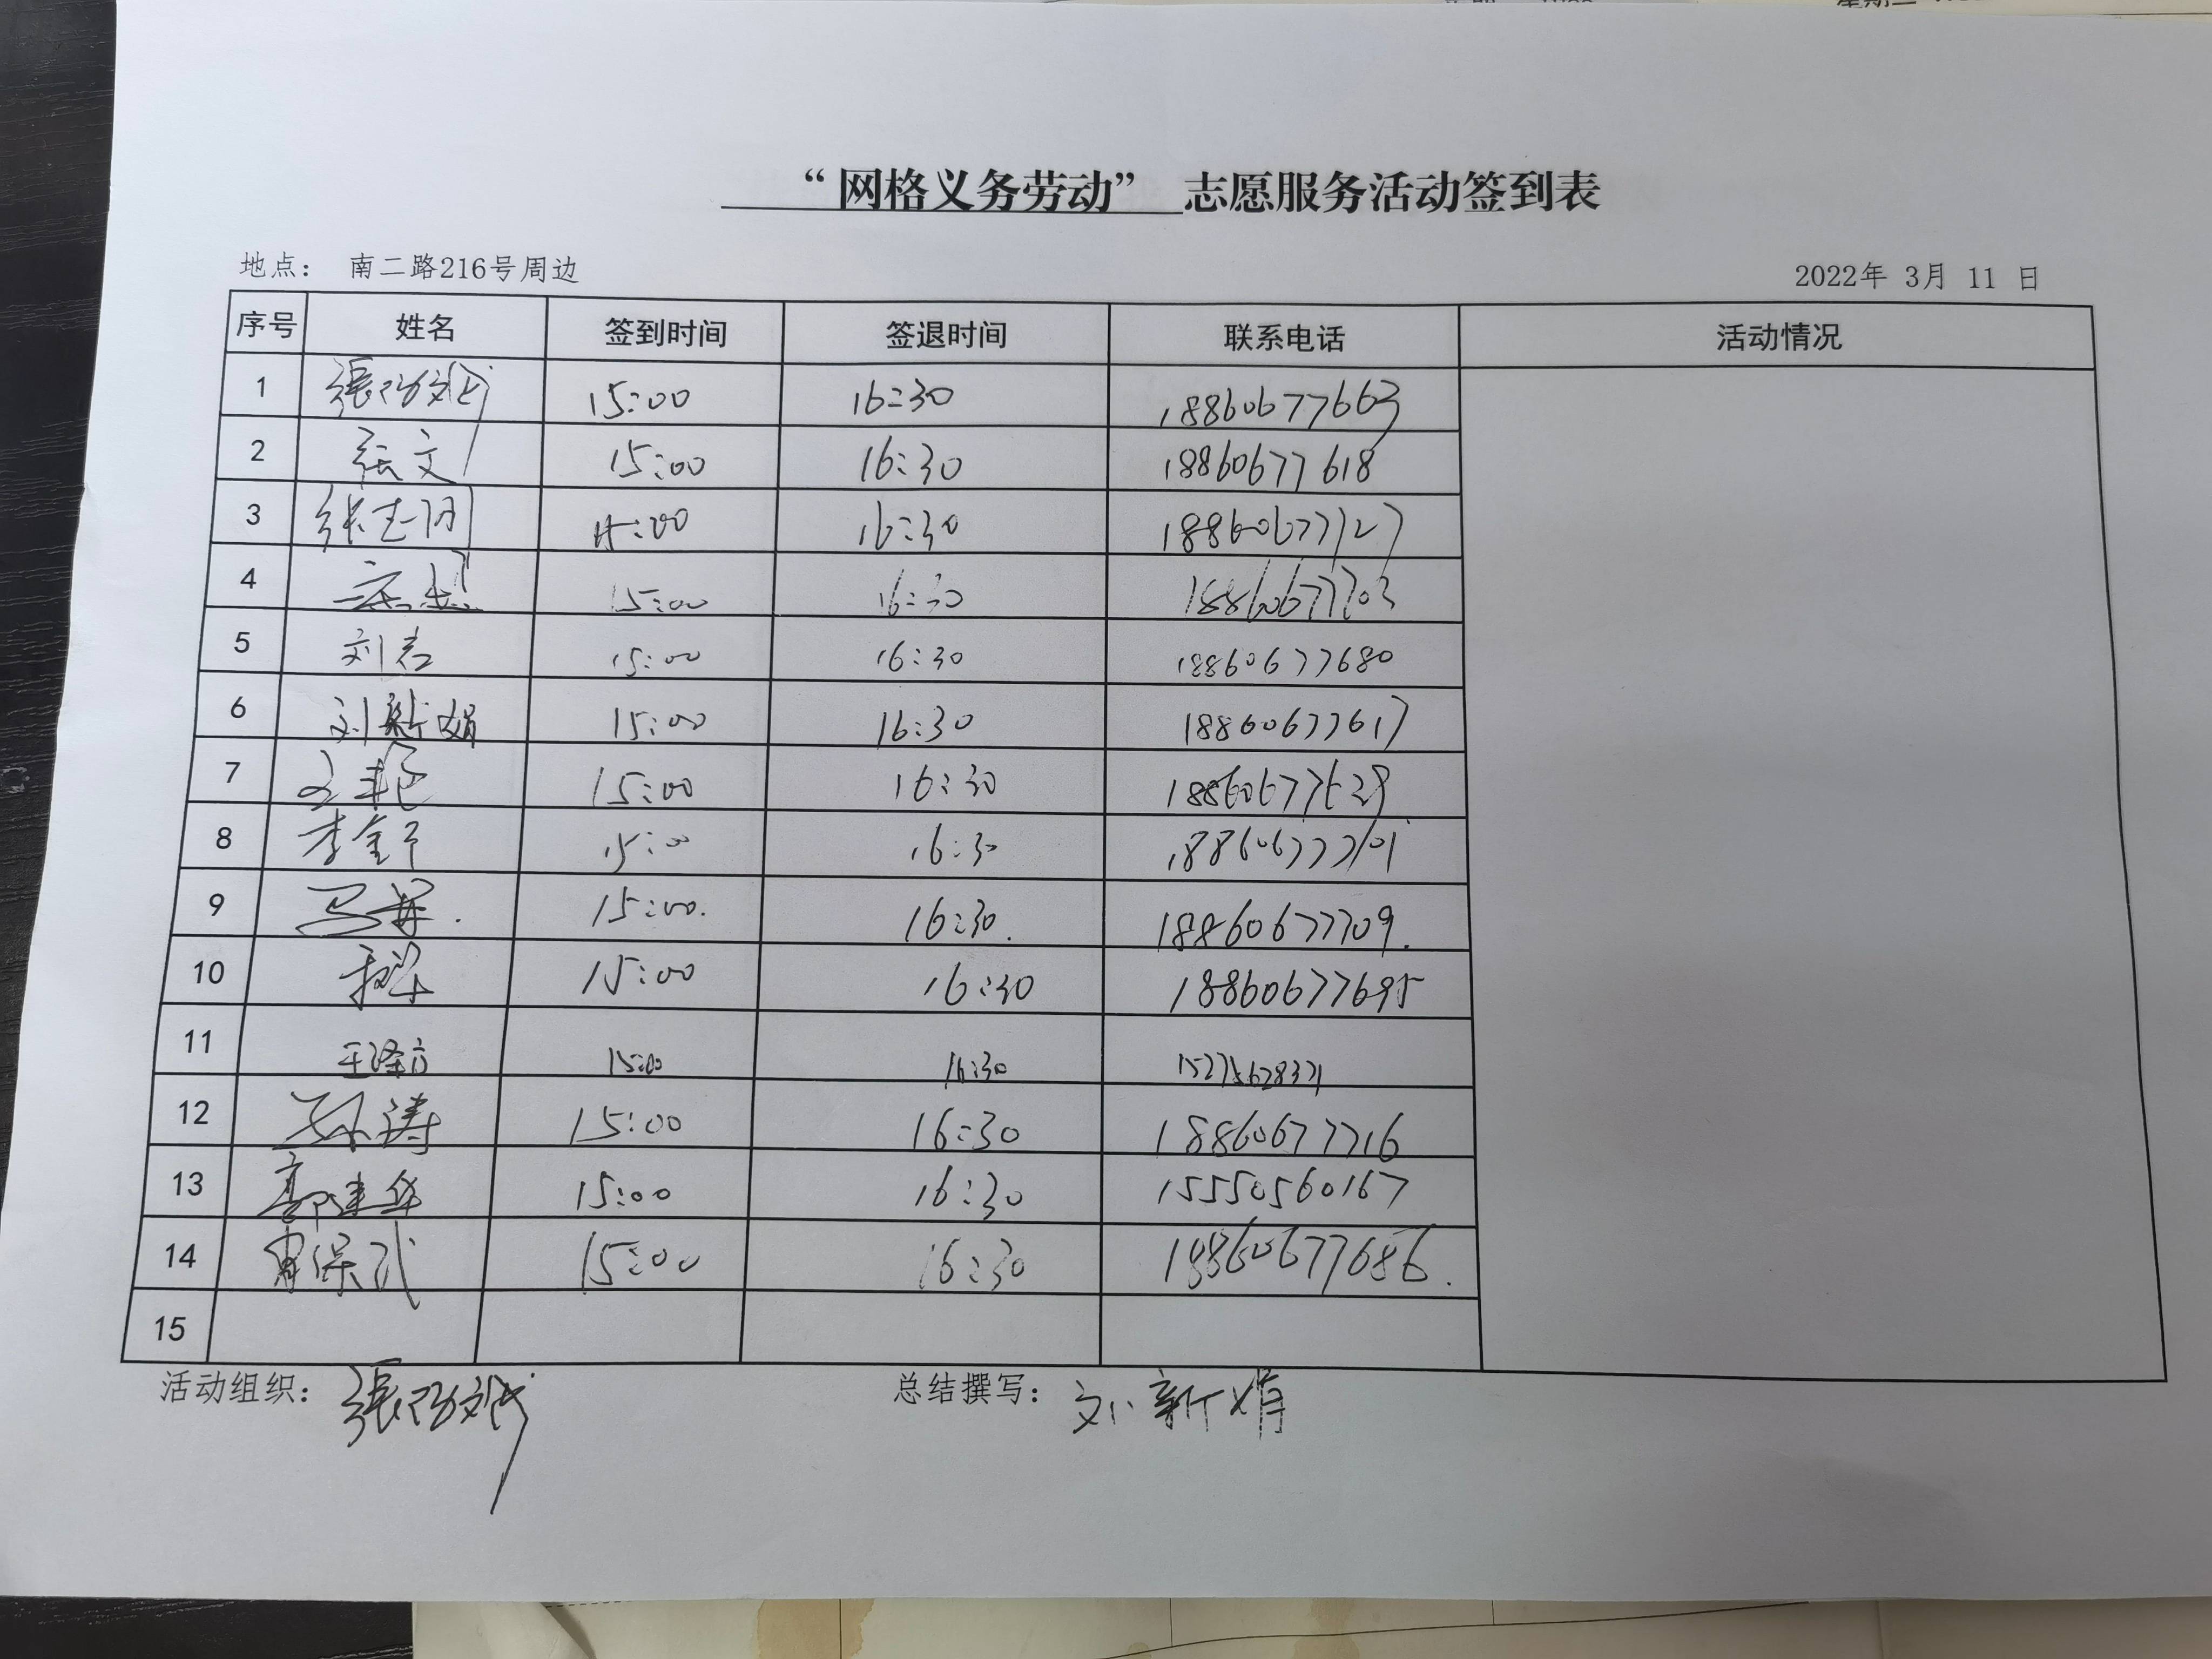 “网格义务劳动” 志愿服务活动签到表
地点： 南二路216号周边 2022年 3月 11 日
序号 姓名 签到时间 签退时间 联系电话 活动情况
1 15:00 16:30 18860677663
2 张文 15:00 16:30 18860677618
3 15:00 16:30 18860677727
4 15:00 16:30 18860677703
5 刘君 15:00 16:30 18860677680
6 刘新娟 15:00 16:30 18860677617
7 15:00 16:30 18860677629
8 15:00 16:30 18860677701
9 15:00. 16:30. 18860677709.
10 15:00 16:30 18860677695
11 15:00 16:30
12 孙涛 15:00 16:30 18860677716
13 郭建华 15:00 16:30 15550560167
14 15:00 16:30 18860677686.
15
活动组织： 总结撰写： 刘新娟